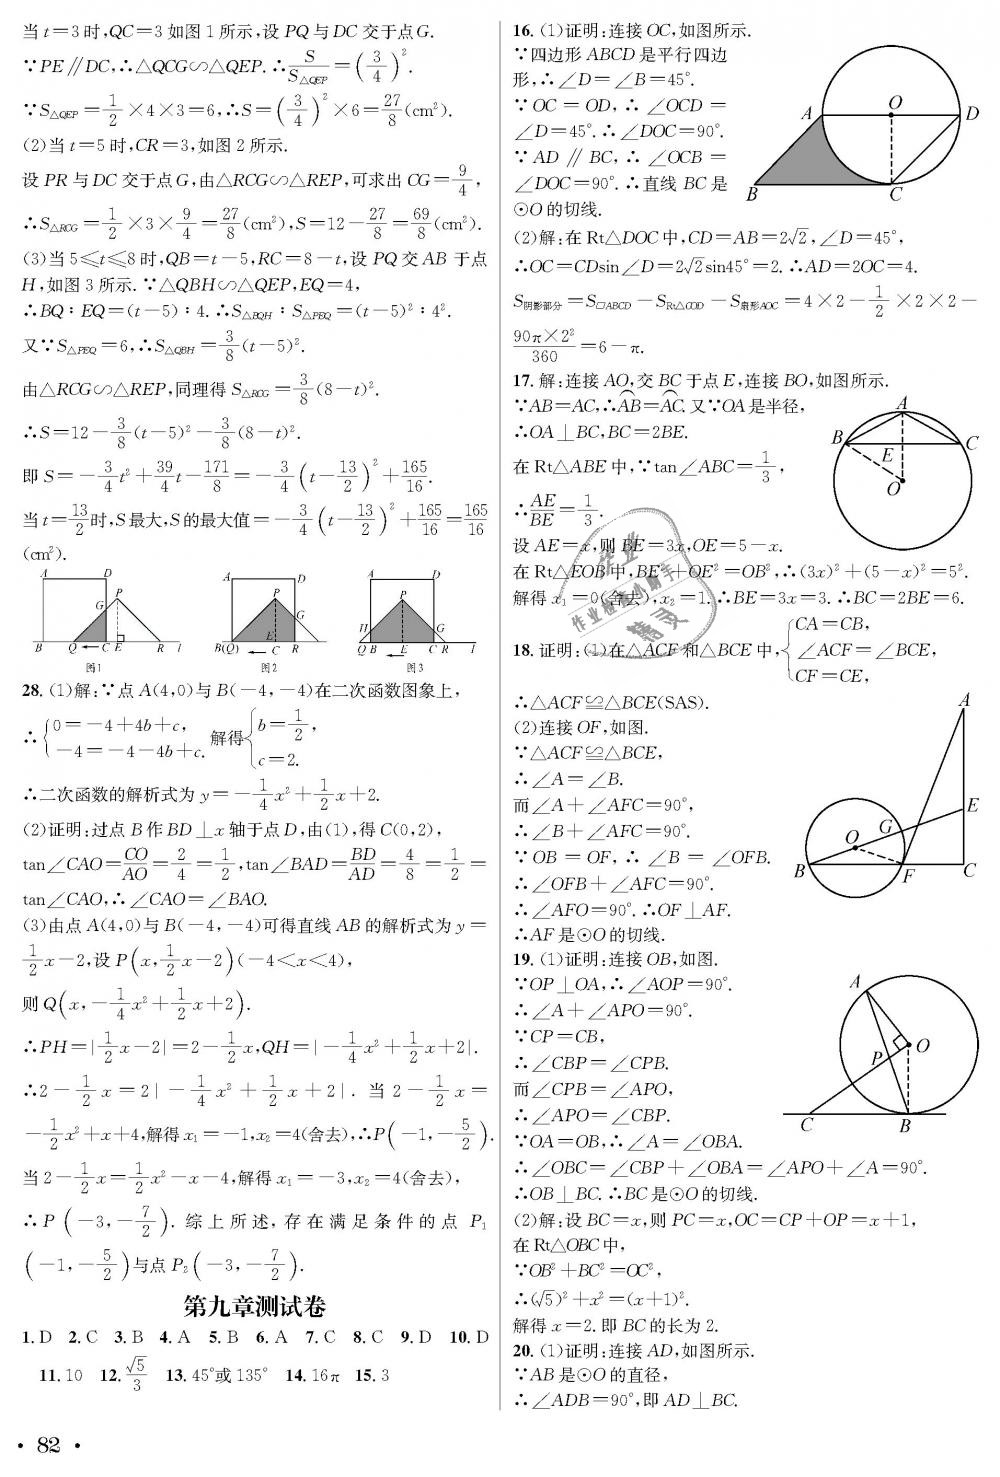 当t=3时,QC=3如图1所示,设PQ与DC交于点G.
∵PE∥DC,∴△QCG∽△QEP.∴S/S△QEP=(3/4)².
∵S△QEP=1/2×4×3=6,∴S=(3/4)²×6=27/8(cm²).
(2)当t=5时,CR=3,如图2所示.
设PR与DC交于点G,由△RCG∽△REP,可求出CG=9/4,
∴S△RCG=1/2×3×9/4=27/8(cm²),S=12-27/8=69/8(cm²).
(3)当5≤t≤8时,QB=t-5,RC=8-t,设PQ交AB于点
H,如图3所示.∵△QBH∽△QEP,EQ=4,
∴BQ∶EQ=(t-5)∶4.∴S△BQH∶S△PEQ=(t-5)²∶4².
又∵S△PEQ=6,∴S△QBH=3/8(t-5)².
由△RCG∽△REP,同理得S△RCG=3/8(8-t)².
∴S=12-3/8(t-5)²-3/8(8-t)².
即S=-3/4t²+39/4t-171/8=-3/4(t-13/2)²+165/16.
当t=13/2时,S最大,S的最大值=-3/4(t-13/2)²+165/16=165/16
(cm²).
A D P G B Q C E R l
图1
A D P G B(Q) E C R l
图2
A D P H G Q B E C R l
图3
28.(1)解:∵点A(4,0)与B(-4,-4)在二次函数图象上,
∴{0=-4+4b+c, -4=-4-4b+c. 解得{b=1/2, c=2.
∴二次函数的解析式为y=-1/4x²+1/2x+2.
(2)证明:过点B作BD⊥x轴于点D,由(1),得C(0,2),
tan∠CAO=CO/AO=2/4=1/2,tan∠BAD=BD/AD=4/8=1/2=
tan∠CAO,∴∠CAO=∠BAO.
(3)由点A(4,0)与B(-4,-4)可得直线AB的解析式为y=
1/2x-2,设P(x,1/2x-2)(-4<x<4),
则Q(x,-1/4x²+1/2x+2).
∴PH=|1/2x-2|=2-1/2x,QH=|-1/4x²+1/2x+2|.
∴2-1/2x=2|-1/4x²+1/2x+2|.当2-1/2x=
-1/2x²+x+4,解得x₁=-1,x₂=4(舍去),∴P(-1,-5/2).
当2-1/2x=1/2x²-x-4,解得x₁=-3,x₂=4(舍去),
∴P(-3,-7/2).综上所述,存在满足条件的点P₁
(-1,-5/2)与点P₂(-3,-7/2).
第九章测试卷
1.D 2.C 3.B 4.A 5.B 6.A 7.C 8.C 9.D 10.D
11.10 12.√5/3 13.45°或135° 14.16π 15.3
· 82 ·
16.(1)证明:连接OC,如图所示.
∵四边形ABCD是平行四边
形,∴∠D=∠B=45°.
∵OC=OD,∴∠OCD=
∠D=45°.∴∠DOC=90°.
∵AD∥BC,∴∠OCB=
∠DOC=90°.∴直线BC是
⊙O的切线.
A O D B C
(2)解:在Rt△DOC中,CD=AB=2√2,∠D=45°,
∴OC=CDsin∠D=2√2sin45°=2.∴AD=2OC=4.
S阴影部分=S▱ABCD-SRt△COD-S扇形AOC=4×2-1/2×2×2-
90π×2²/360=6-π.
17.解:连接AO,交BC于点E,连接BO,如图所示.
∵AB=AC,∴AB⌒=AC⌒.又∵OA是半径,
∴OA⊥BC,BC=2BE.
在Rt△ABE中,∵tan∠ABC=1/3,
∴AE/BE=1/3.
设AE=x,则BE=3x,OE=5-x.
A B E C O
在Rt△EOB中,BE²+OE²=OB²,∴(3x)²+(5-x)²=5².
解得x₁=0(舍去),x₂=1.∴BE=3x=3.∴BC=2BE=6.
18.证明:(1)在△ACF和△BCE中,{CA=CB, ∠ACF=∠BCE, CF=CE,
∴△ACF≌△BCE(SAS).
(2)连接OF,如图.
∵△ACF≌△BCE,
∴∠A=∠B.
而∠A+∠AFC=90°,
∴∠B+∠AFC=90°.
∵OB=OF,∴∠B=∠OFB.
∴∠OFB+∠AFC=90°.
∴∠AFO=90°.∴OF⊥AF.
∴AF是⊙O的切线.
A E G O B F C
19.(1)证明:连接OB,如图.
∵OP⊥OA,∴∠AOP=90°.
∴∠A+∠APO=90°.
∵CP=CB,
∴∠CBP=∠CPB.
而∠CPB=∠APO,
∴∠APO=∠CBP.
∵OA=OB,∴∠A=∠OBA.
A P O C B
∴∠OBC=∠CBP+∠OBA=∠APO+∠A=90°.
∴OB⊥BC.∴BC是⊙O的切线.
(2)解:设BC=x,则PC=x,OC=CP+OP=x+1,
在Rt△OBC中,
∵OB²+BC²=OC²,
∴(√5)²+x²=(x+1)².
解得x=2.即BC的长为2.
20.(1)证明:连接AD,如图所示.
∵AB是⊙O的直径,
∴∠ADB=90°,即AD⊥BC.
作业
作业检查小助手
精灵